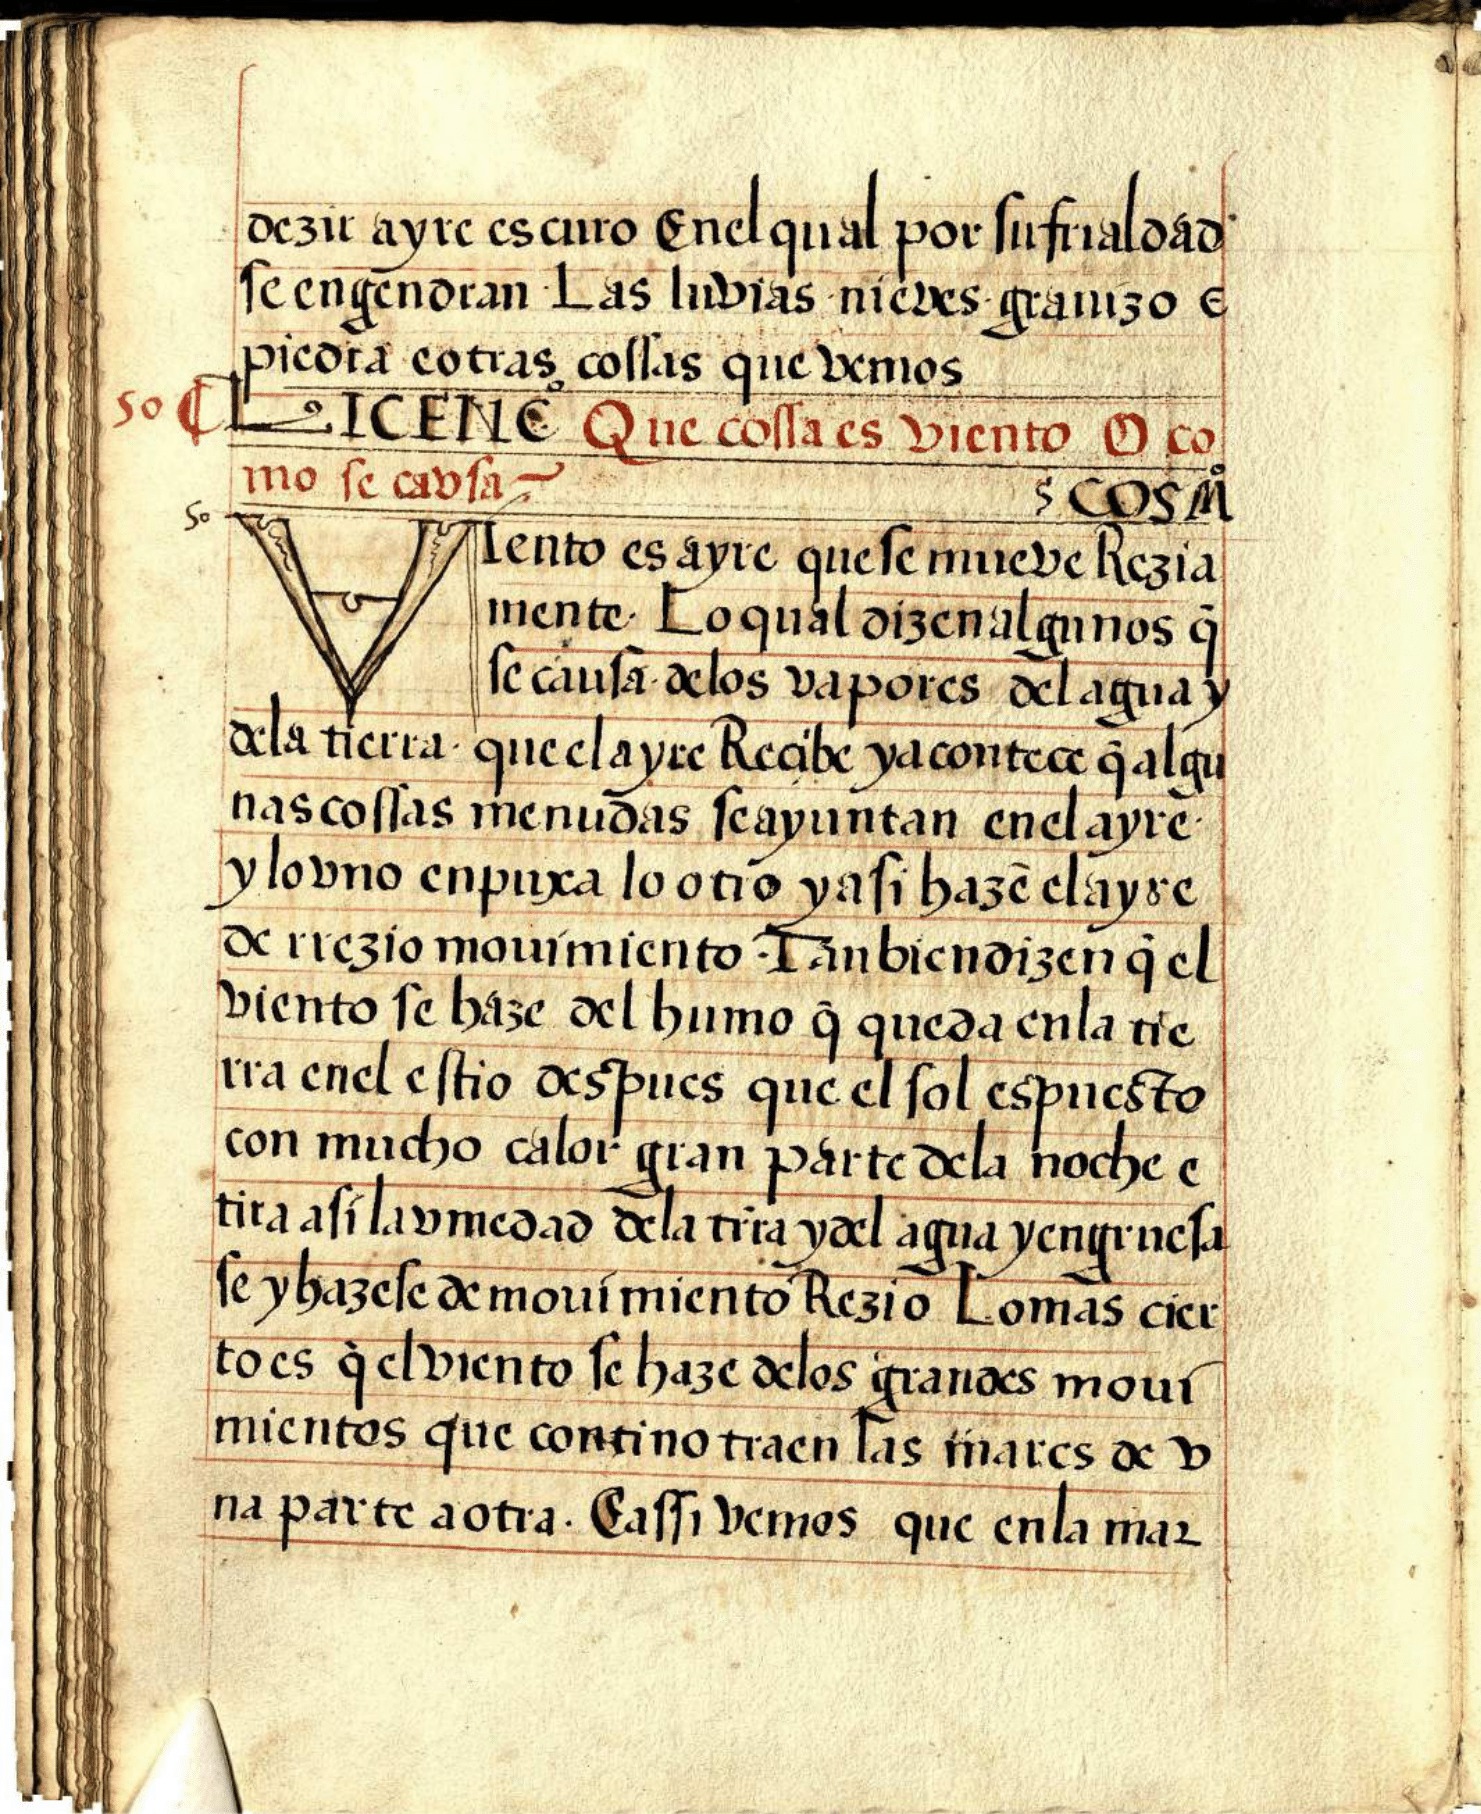 dezir ayre escuro Enel qual por su frialdad
se engendran Las luvias nieves granizo e
piedra e otras cossas que vemos
50 ¶ LICENC͛º Que cossa es viento O co
mo se cavsa ~
s COSMº
50
VIento es ayre que se mueve Rezia
mente. Lo qual dizen algunos q̄
se causa delos vapores del agua y
dela tierra. que el ayre Recibe y acontece q̄ algu
nas cossas menudas se ayuntan en el ayre.
y lo vno enpuxa lo otro y asi hazē el ayre
de rrezio mouimiento. Tan bien dizen q̄ el
viento se haze del humo q̄ queda en la tie
rra enel estio despues que el sol es puesto
con mucho calor gran parte dela noche e
tira asi la vmedad dela trra y del agua y engruesa
se y hazese de mouimiento Rezio Lo mas cier
to es q̄ el viento se haze delos grandes moui
mientos que contino traen las mares de v
na parte a otra. E assi vemos que en la mar